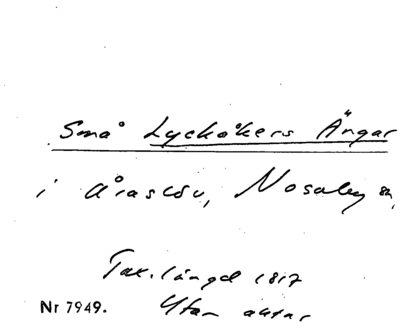 Små Lyckåkers Ängar
i Åraslöv, Nosaby sn,
Tax. längd 1817
Nr 7949. Utan akter